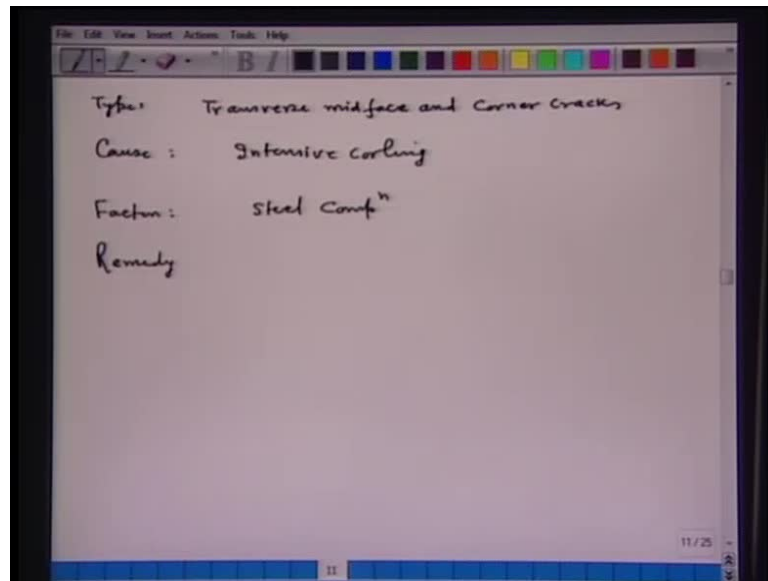 File Edit View Insert Actions Tools Help
B I
Type: Transverse midface and Corner Cracks
Cause : Intensive Cooling
Factor : Steel Compⁿ
Remedy
11 / 25
11